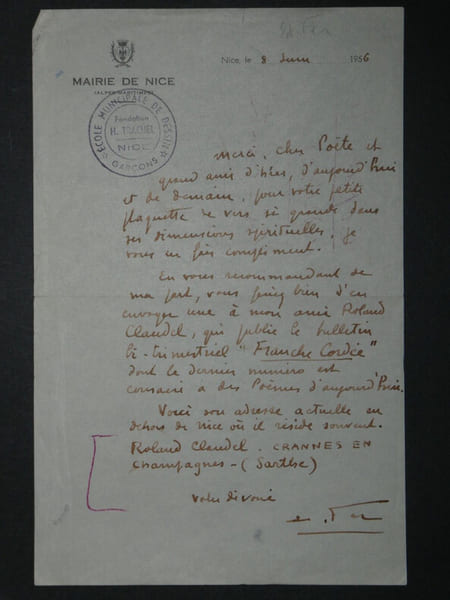 MAIRIE DE NICE
(ALPES-MARITIMES)
ÉCOLE MUNICIPALE DE DESSIN
Fondation
H. TRACHEL
NICE
GARÇONS
Nice, le 8 Juin 1956
Merci, cher Poète et
grand ami d'hier, d'aujourd'hui
et de demain, pour votre petite
plaquette de vers si grande dans
ses dimensions spirituelles. Je
vous en fais compliment.
En vous recommandant de
ma part, vous bien d'en
envoyer une à mon ami Roland
Claudel, qui publie le bulletin
bi-trimestriel "Franche Cordée"
dont le dernier numéro est
consacré à des Poèmes d'aujourd'hui.
Voici son adresse actuelle en
dehors de Nice où il réside souvent.
Roland Claudel. CRANNES EN
Champagne - (Sarthe)
Votre dévoué